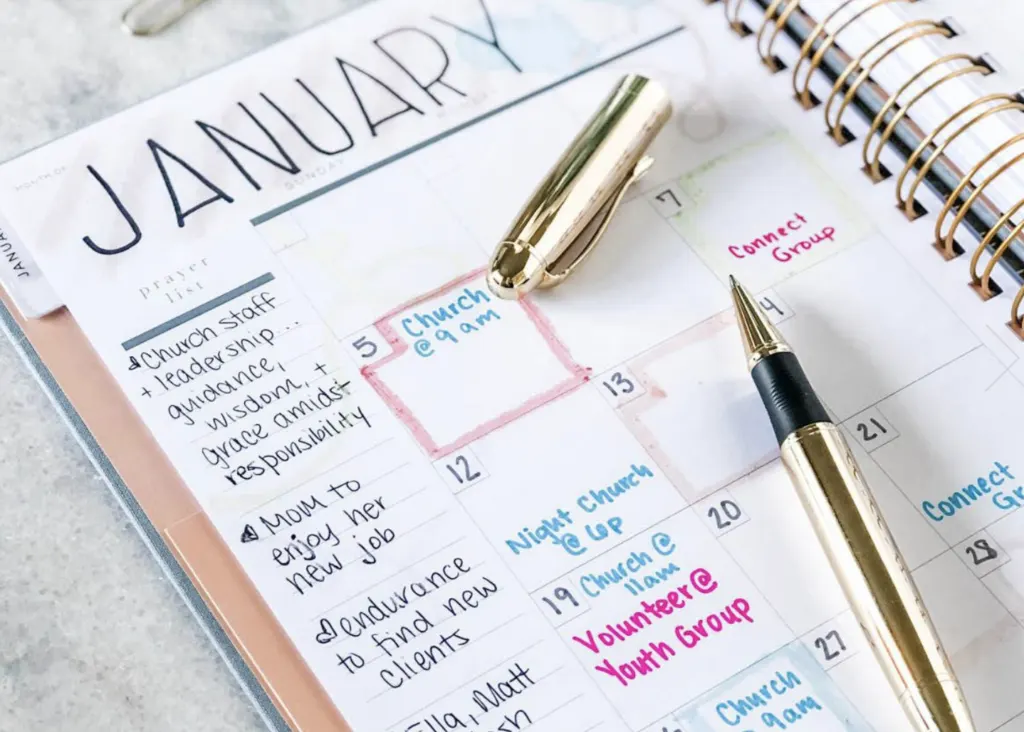 MONTH OF
JANUARY
SUNDAY
prayer
list
Church staff
+ leadership...
guidance,
wisdom, +
grace amidst
responsibility
Mom to
enjoy her
new job
endurance
to find new
clients
Ella, Matt
5
Church
@ 9am
7
Connect
Group
12
Night Church
@ 6p
13
19
Church @
11am
Volunteer @
Youth Group
20
21
Connect
28
27
Church
9am